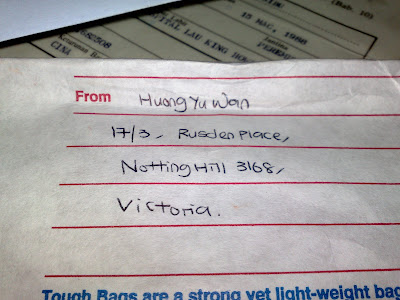 (Bab. 10)
15 MAC, 1988
PITAL LAU KING HO
CINA
From Huong Yu Wan
17/3, Rusden Place,
Notting Hill 3168,
Victoria.
Tough Bags are a strong yet light-weight bag